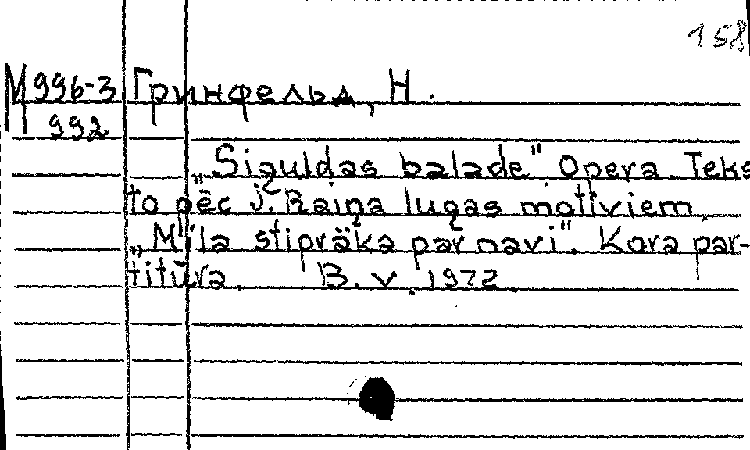 158
М 996-3 Гринфельд, Н.
992
„Siguldas balade" Opera. Teks
to pēc J. Raiņa lugas motīviem
„Mīla stiprāka par nāvi". Kora par-
titūra. B. v. 1972.